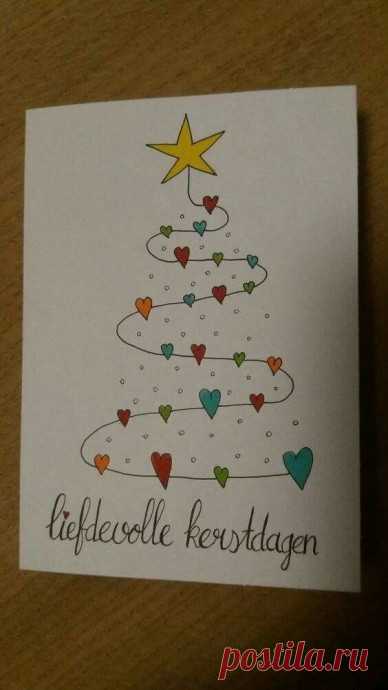 liefdevolle kerstdagen
postila.ru